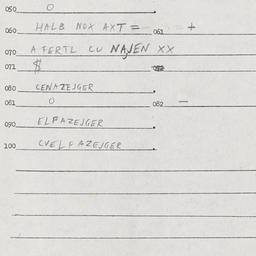 050 O
060 HALB NOX AXT = 061 +
070 AFERTL CU NAJEN XX
071 $
080 CENAZEJGER
081 O 082 —
090 ELFAZEJGER
100 CVELFAZEJGER